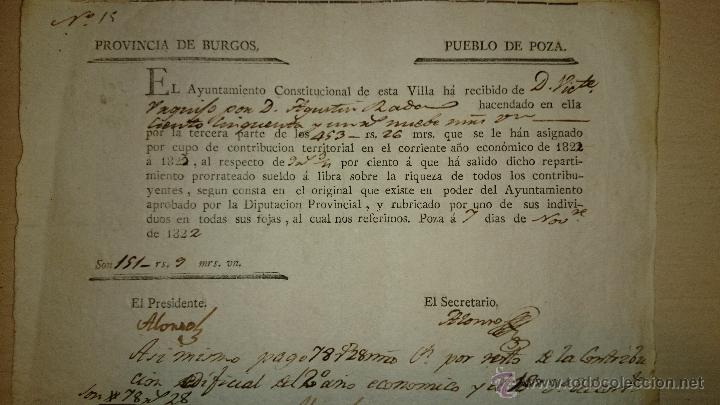 Nº 15
PROVINCIA DE BURGOS. PUEBLO DE POZA.
EL Ayuntamiento Constitucional de esta Villa há recibido de D. Victe.
por D. Agustin hacendado en ella
Ciento cinquenta y un rs nuebe mrs vn
por la tercera parte de los 453 rs. 26 mrs. que se le hán asignado
por cupo de contribucion territorial en el corriente año económico de 1822
á 1823, al respecto de por ciento á que há salido dicho reparti-
miento prorrateado sueldo á libra sobre la riqueza de todos los contribu-
yentes, segun consta en el original que existe en poder del Ayuntamiento
aprobado por la Diputacion Provincial, y rubricado por uno de sus indivi-
duos en todas sus fojas, al cual nos referimos. Poza á 7 dias de Novre
de 1822
Son 151 rs. 9 mrs. vn.
El Presidente, El Secretario,
Alonso Alonso
Asi mismo pago 78 28 por resto de la Contribu
cion del 2º año economico y el
Son 78 28
todocoleccion.net